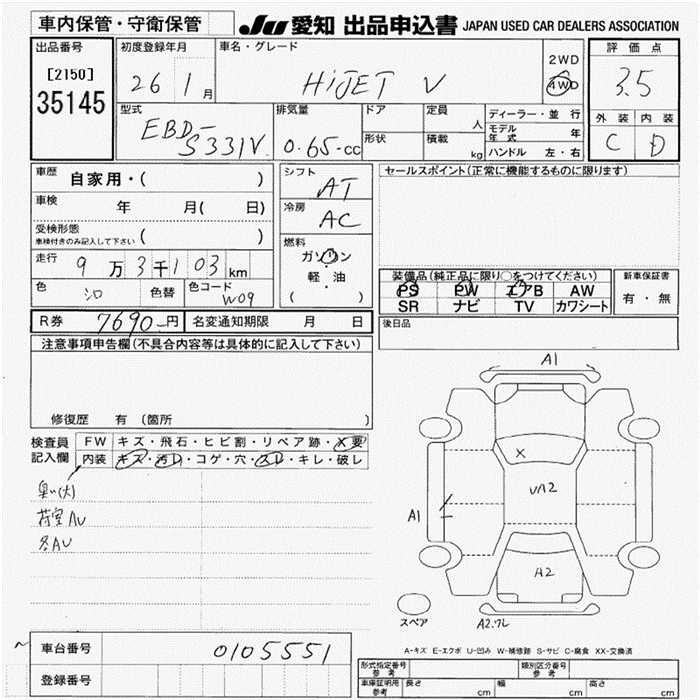 車内保管・守衛保管
JU 愛知 出品申込書 JAPAN USED CAR DEALERS ASSOCIATION
出品番号
[2150]
35145
初度登録年月
26 1月
車名・グレード
HiJET V
2WD
4WD
評価点
3.5
外装 内装
C D
型式
EBD-
S331V
排気量
0.65-cc
ドア
形状
定員
人
積載
kg
ディーラー・並行
モデル年式 年
ハンドル 左・右
車歴
自家用・( )
車検 年 月( 日)
受検形態
車検付きのみ記入して下さい ( )
走行 9万3千103km
色 シロ 色替 色コード W09
シフト
AT
冷房
AC
燃料
ガソリン
軽・油
( )
セールスポイント(正常に機能するものに限ります)
装備品(純正品に限り○をつけてください)
PS PW エアB AW
SR ナビ TV カワシート
新車保証書
有・無
後日品
R券 7690-円 名変通知期限 月 日
注意事項申告欄(不具合内容等は具体的に記入して下さい)
修復歴 有 (箇所 )
検査員
記入欄
FW キズ・飛石・ヒビ割・リペア跡・X要
内装 キズ・汚レ・コゲ・穴・スレ・キレ・破レ
臭い(大)
荷室AU
各AU
A1
X
UA2
A1
A2
スペア
A2.フレ
A-キズ E-エクボ U-凹み W-補修跡 S-サビ C-腐食 XX-交換済
車台番号 0105551
登録番号
形式指定番号
参考
類別区分番号
参考
車庫証明用
参考
長さ cm 幅 cm 高さ cm